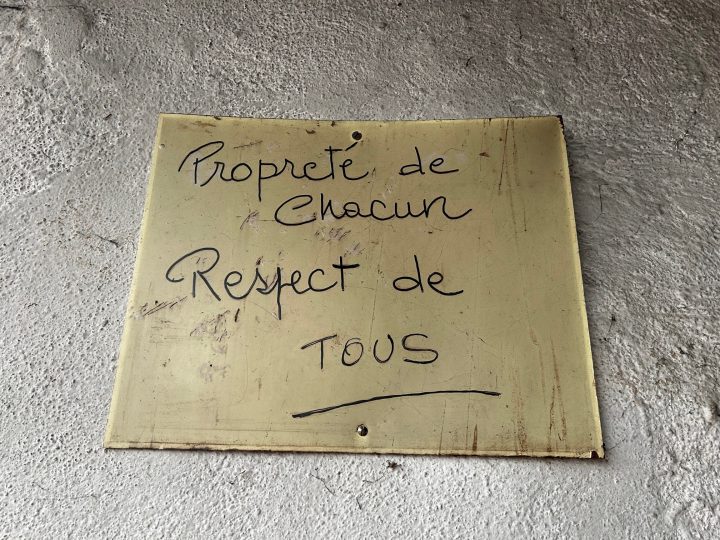 Propreté de
Chacun
Respect de
TOUS